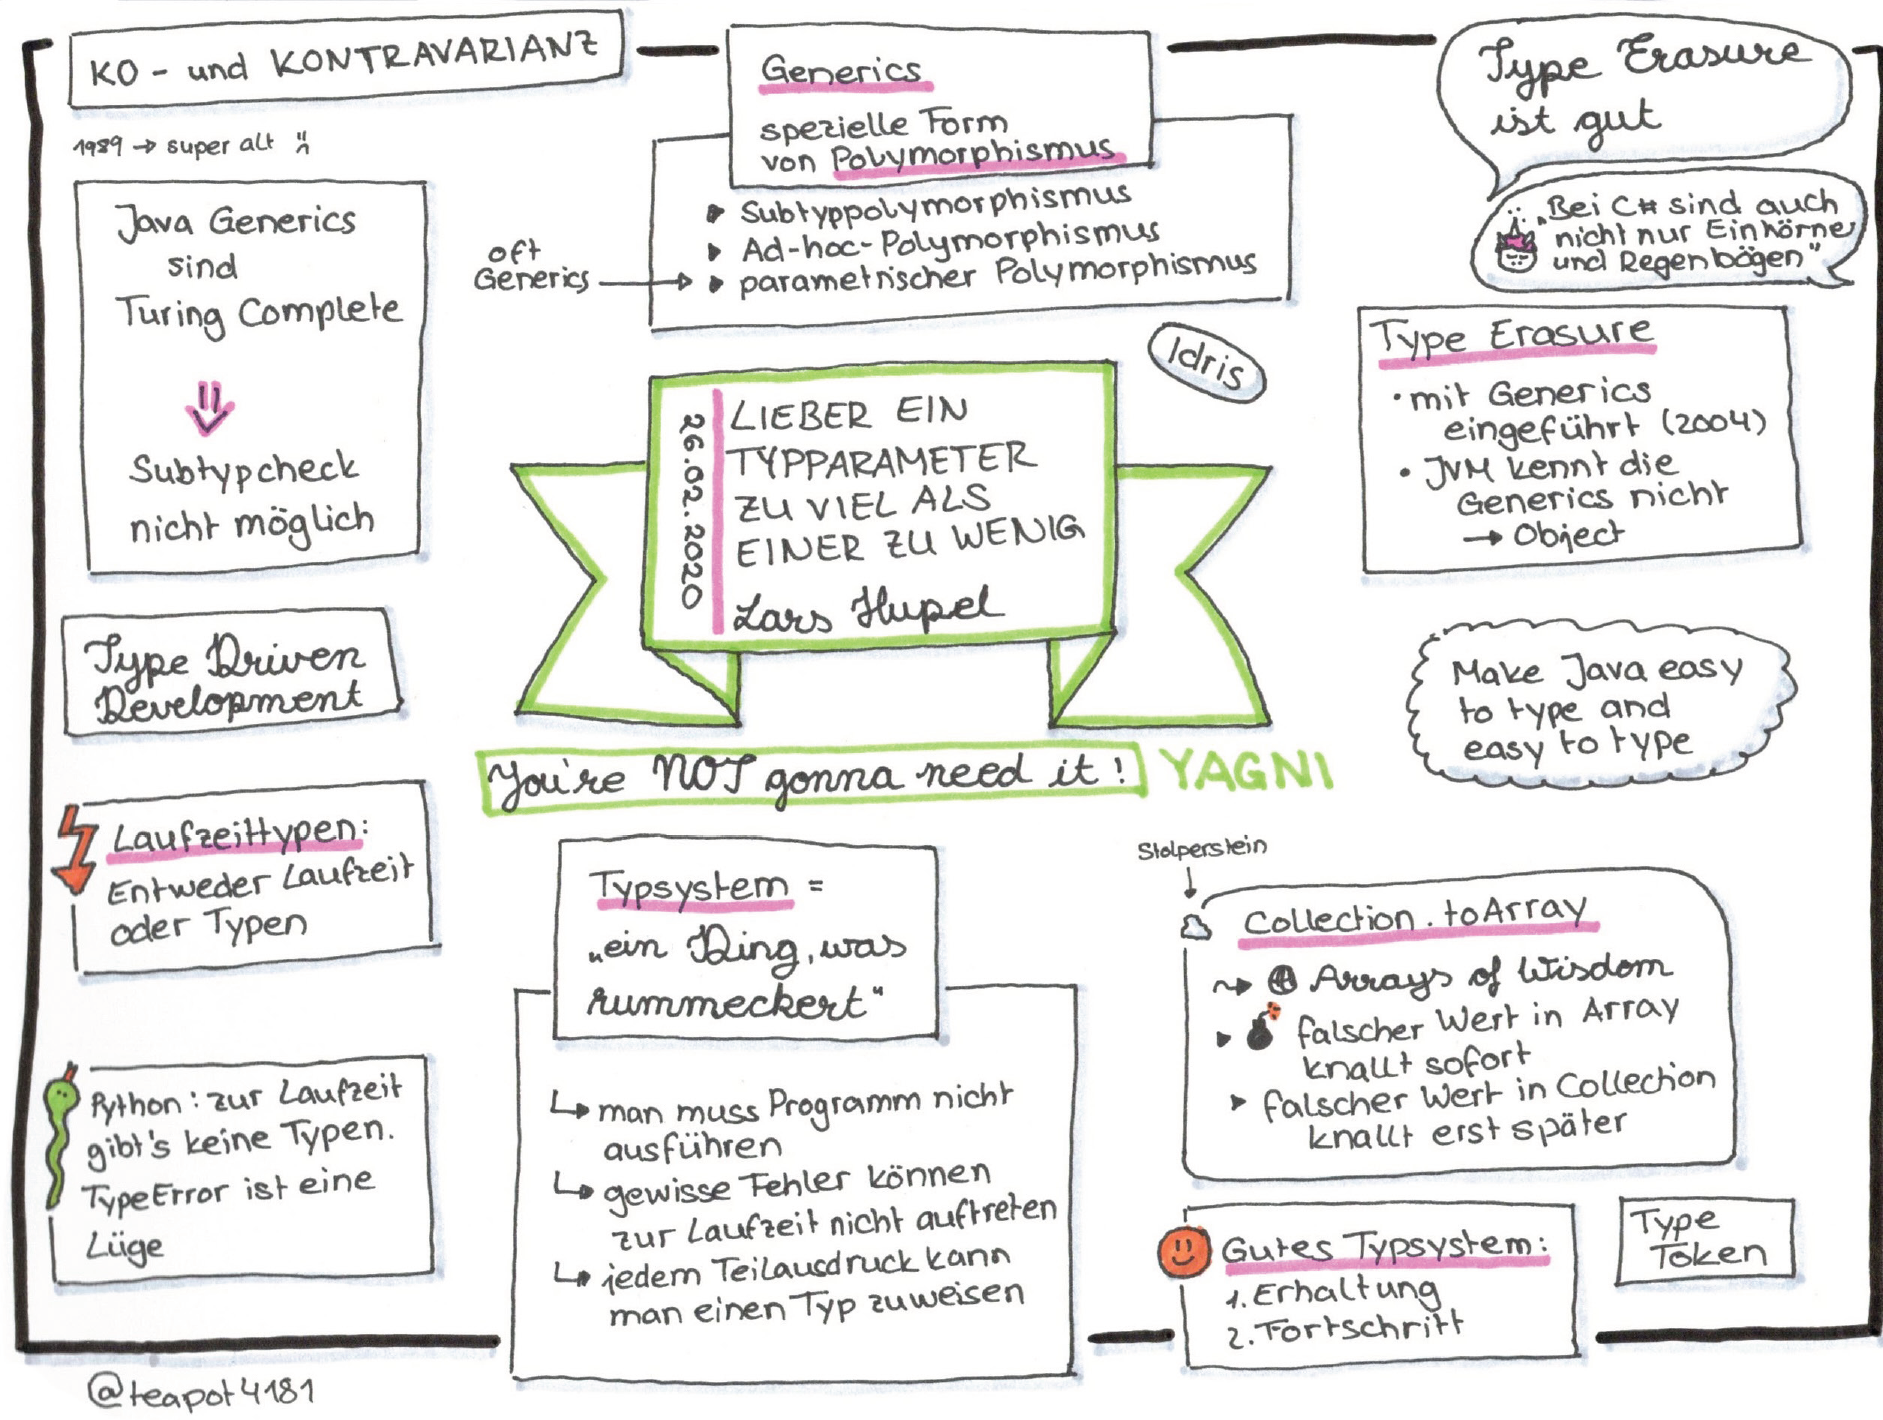 KO- und KONTRAVARIANZ
1989 → super alt
Java Generics
sind
Turing Complete
Subtypcheck
nicht möglich
Type Driven
Development
Laufzeittypen:
Entweder Laufzeit
oder Typen
Python: zur Laufzeit
gibt's keine Typen.
TypeError ist eine
Lüge
@teapot4181
Generics
spezielle Form
von Polymorphismus
▸ Subtyppolymorphismus
▸ Ad-hoc-Polymorphismus
▸ parametrischer Polymorphismus
oft
Generics
Idris
26.02.2020
LIEBER EIN
TYPPARAMETER
ZU VIEL ALS
EINER ZU WENIG
Lars Hupel
You're NOT gonna need it! YAGNI
Typsystem =
„ein Ding, was
rummeckert“
↳ man muss Programm nicht
ausführen
↳ gewisse Fehler können
zur Laufzeit nicht auftreten
↳ jedem Teilausdruck kann
man einen Typ zuweisen
Type Erasure
ist gut
„Bei C# sind auch
nicht nur Einhörner
und Regenbögen“
Type Erasure
• mit Generics
eingeführt (2004)
• JVM kennt die
Generics nicht
→ Object
Make Java easy
to type and
easy to type
Stolperstein
Collection.toArray
Arrays of Wisdom
▸ falscher Wert in Array
knallt sofort
▸ falscher Wert in Collection
knallt erst später
Gutes Typsystem:
1. Erhaltung
2. Fortschritt
Type
Token